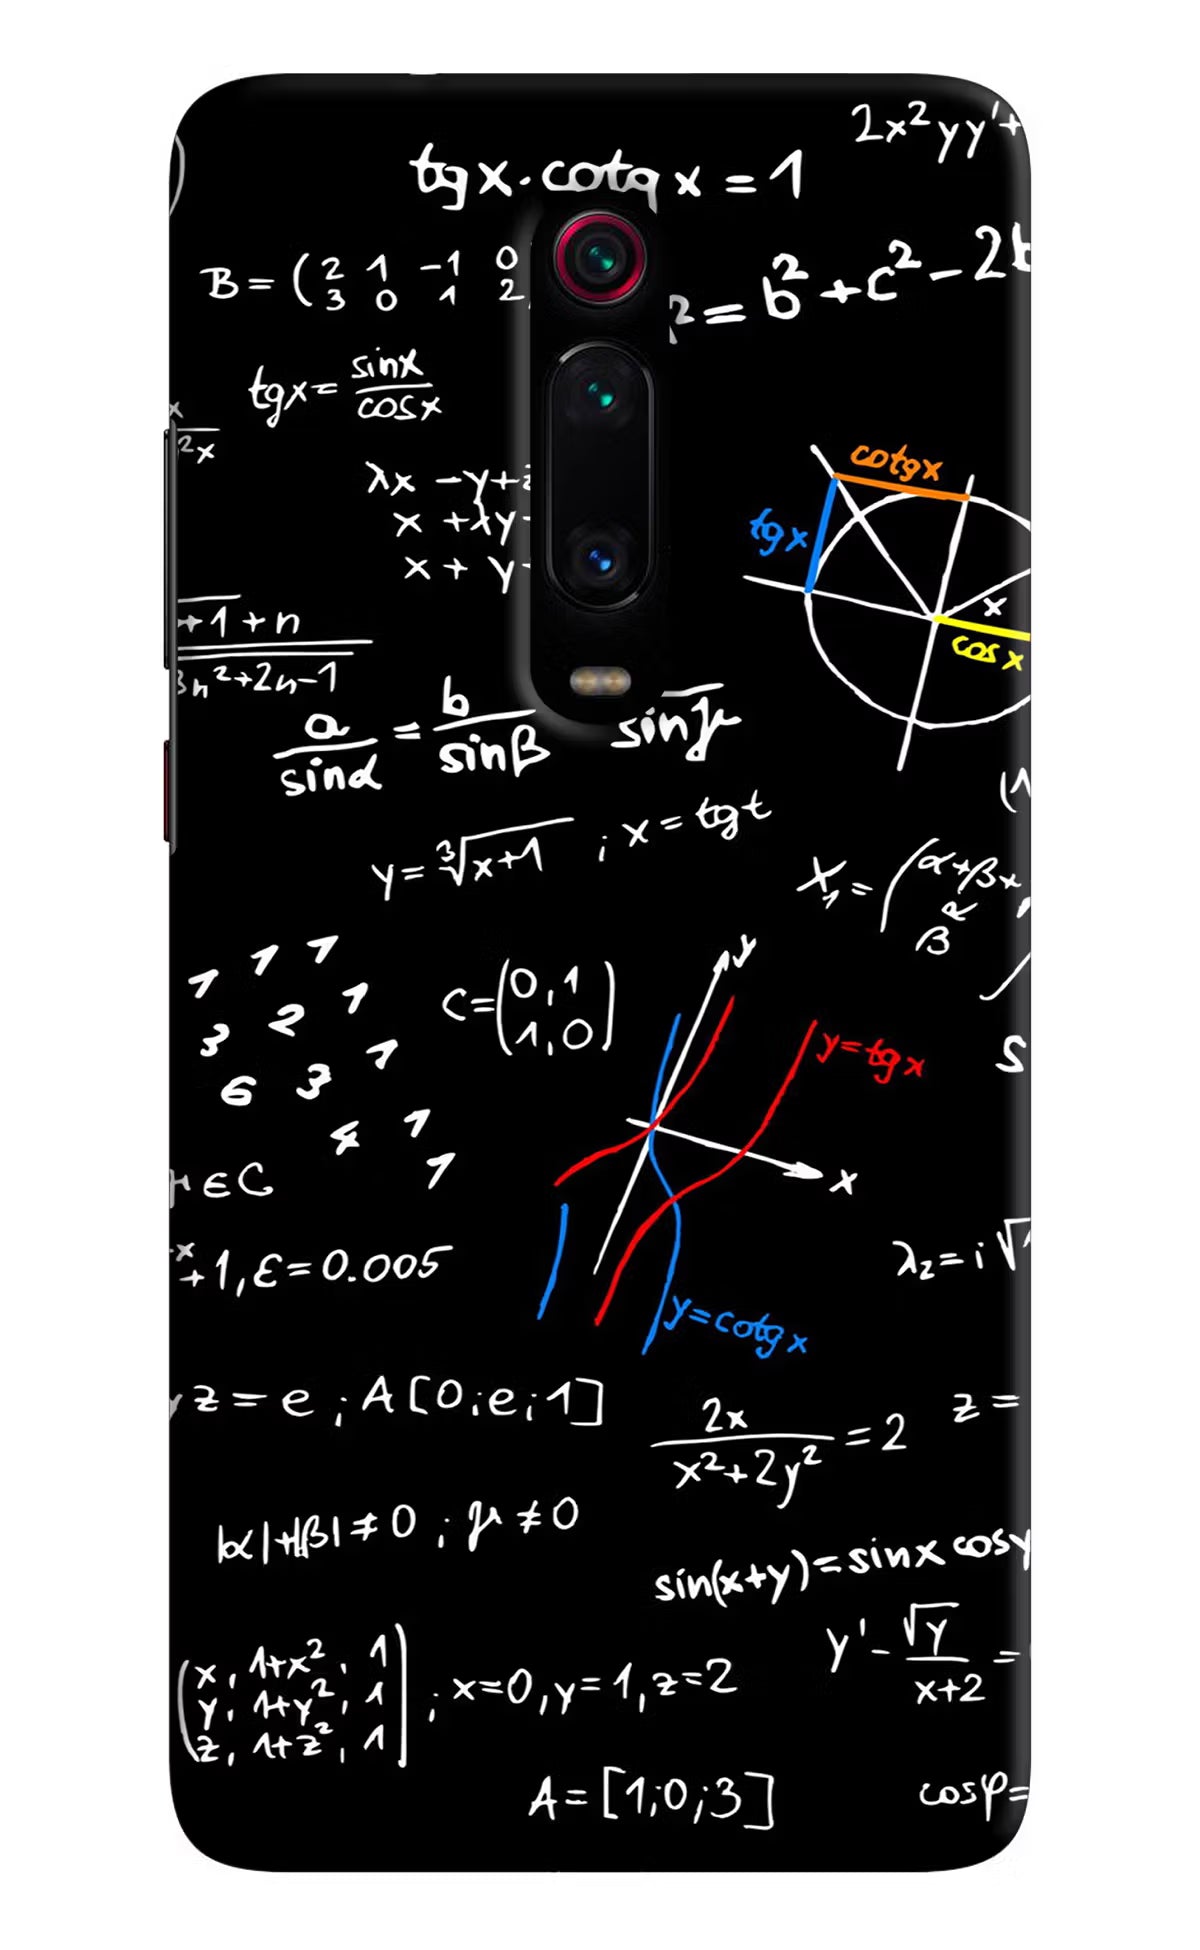 2x²yy'+
tgx·cotgx=1
B=(2 1 -1 0
3 0 1 2
²=b²+c²-2b
tgx=sinx/cosx
x
²x
λx-y+z
x+λy-
x+y-
cotgx
tgx
x
cosx
+1+n
3n²+2n-1
a/sinα=b/sinβ sinμ
y=∛x+1 ; x=tgt
X₁=(α+β+
β R
1 1 1
3 2 1
6 3 1
4 1
1
C=(0,1
1,0)
y
y=tgx
S
x
μ∈C
x
+1,ε=0.005
λ₂=i√
y=cotgx
z=e ; A[0;e;1]
2x/x²+2y²=2
z=
|α|+|β|≠0 ; μ≠0
sin(x+y)=sinx cosy
y'-√y/x+2=
(x, 1+x², 1
y, 1+y², 1
z, 1+z², 1) ; x=0,y=1,z=2
A=[1;0;3]
cosφ=